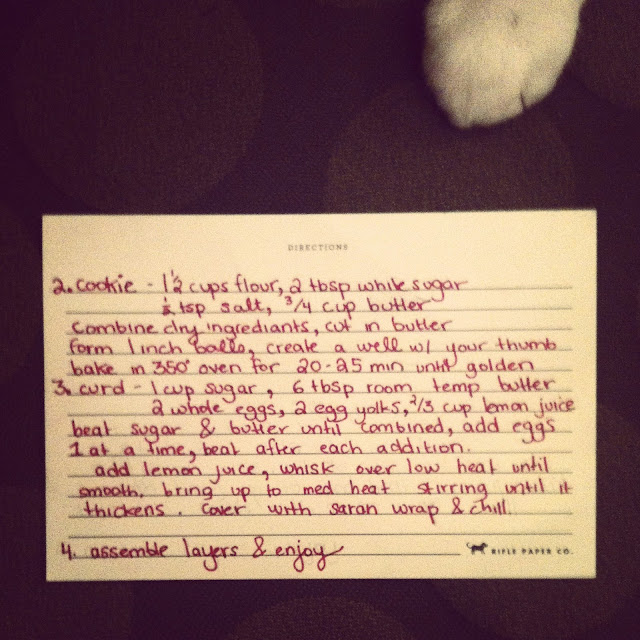 DIRECTIONS
2. cookie - 1 1/2 cups flour, 2 tbsp white sugar
1/2 tsp salt, 3/4 cup butter
combine dry ingrediants, cut in butter
form 1 inch balls, create a well w/ your thumb
bake in 350° oven for 20-25 min until golden
3. curd - 1 cup sugar, 6 tbsp room temp butter
2 whole eggs, 2 egg yolks, 2/3 cup lemon juice
beat sugar & butter until combined, add eggs
1 at a time, beat after each addition.
add lemon juice, whisk over low heat until
smooth. bring up to med heat stirring until it
thickens. cover with saran wrap & chill.
4. assemble layers & enjoy
RIFLE PAPER CO.